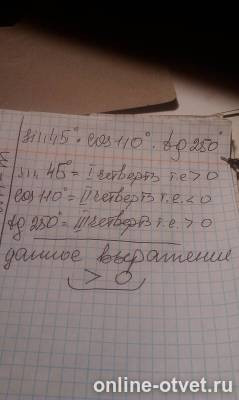 sin 45° · cos 110° · tg 250°
sin 45° = I четверть т.е > 0
cos 110° = II четверть т.е. < 0
tg 250° = III четверть т.е. > 0
данное выражение
> 0
online-otvet.ru